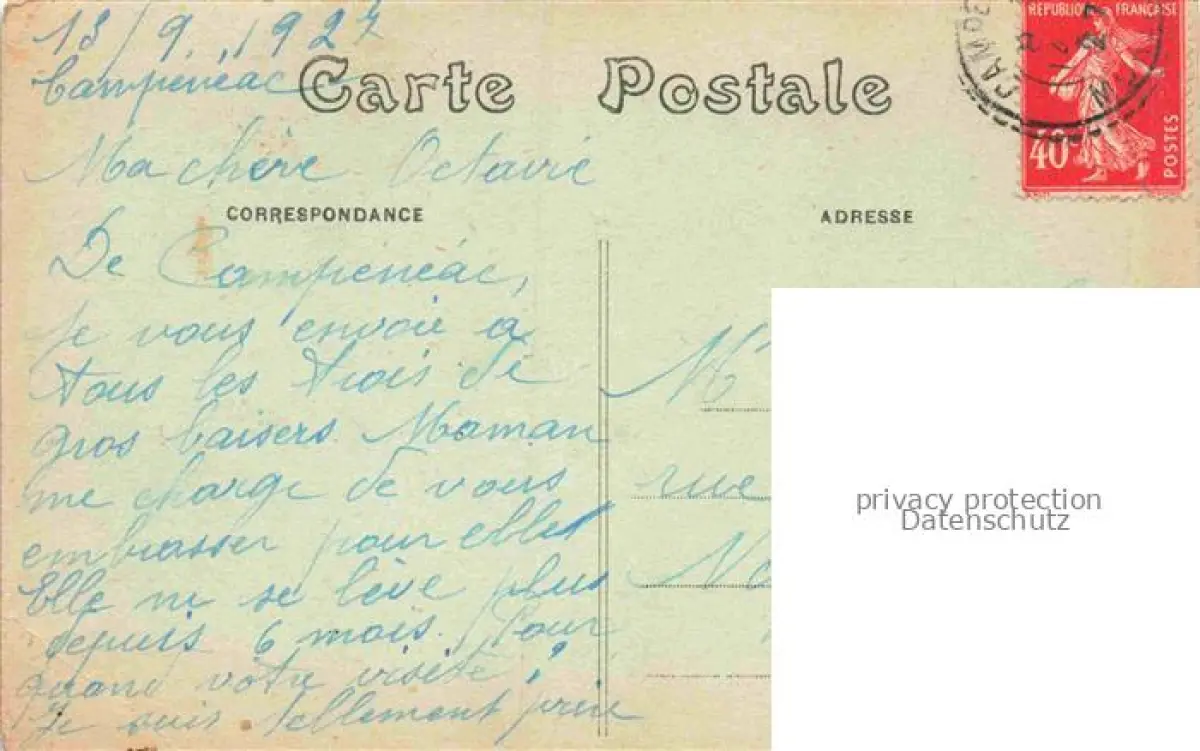 13/9, 1927
Campénéac
Carte Postale
RÉPUBLIQUE FRANÇAISE
40
POSTES
Ma chère Octavie
CORRESPONDANCE
ADRESSE
De Campénéac,
je vous envoie a
tous les trois de
gros baisers. Maman
me charge de vous
embrasser pour elle
Elle ne se lève plus
depuis 6 mois. Pour
quand votre visite ?
Je suis tellement prise
M
rue
privacy protection
Datenschutz